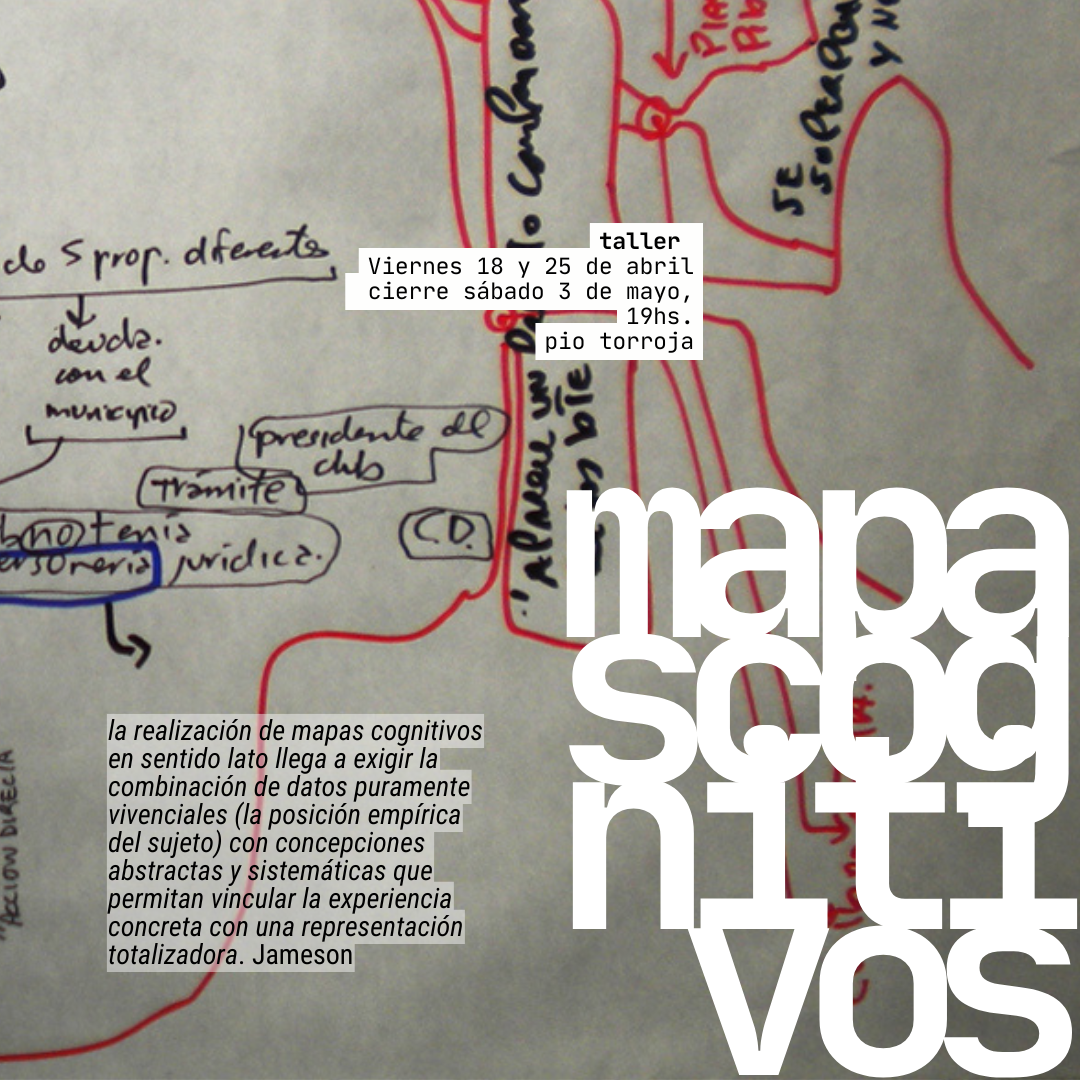 Y
SE
do 5 prop. diferente
taller
Viernes 18 y 25 de abril
cierre sábado 3 de mayo,
19hs.
pio torroja
deuda.
con el
municipio
presidente del
club
Trámite
C.D.
no tenía
personería jurídica.
"Aparece un
mapa
scog
niti
vos
la realización de mapas cognitivos
en sentido lato llega a exigir la
combinación de datos puramente
vivenciales (la posición empírica
del sujeto) con concepciones
abstractas y sistemáticas que
permitan vincular la experiencia
concreta con una representación
totalizadora. Jameson
"ACCION DIRECTA